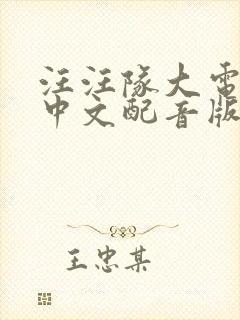 汪汪队大电
中文配音版
王忠某